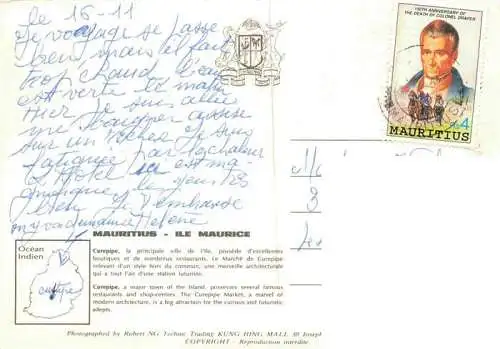 le 16-11
Le voyage se passe
bien mais il fait
trop chaud l'eau
est verte le matin
Hier je suis allée
me tremper assise
sur un rocher je suis
fatiguée par la chaleur
L'Hotel est ma-
gnifique les gens très
bien Je t'embrasse
Helène
150TH ANNIVERSARY OF
THE DEATH OF COLONEL DRAPER
4
MAURITIUS
MAURITIUS - ILE MAURICE
Océan
Indien
curepipe
Curepipe, la principale ville de l'Ile, possède d'excellentes
boutiques et de nombreux restaurants. Le Marché de Curepipe
relevant d'un style hors du commun, une merveille architecturale
qui a tout l'air d'une station futuriste.
Curepipe, a major town of the Island, possesses several famous
restaurants and shop-centres. The Curepipe Market, a marvel of
modern architecture, is a big attraction for the curious and futuristic
adepts.
Photographed by Robert NG Techno Trading KUNG HING MALL 39 Joseph
COPYRIGHT - Reproduction interdite